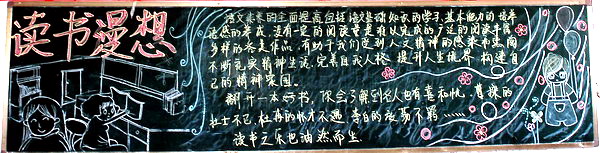 读书漫想
语文素养的全面提高包括语文基础知识的学习,基本能力的培养
语感的养成,没有一定的阅读量是难以完成的广泛的阅读丰富
多样的各类作品,有助于我们受到人文精神的感染和熏陶
不断充实精神生活,完善自我人格,提升人生境界,构建自
己的精神家园。
翻开一本好书,你会了解到名人也有喜和忧,曹操的
壮士不已,杜甫的怀才不遇,李白的放荡不羁……
读书之乐也油然而生.